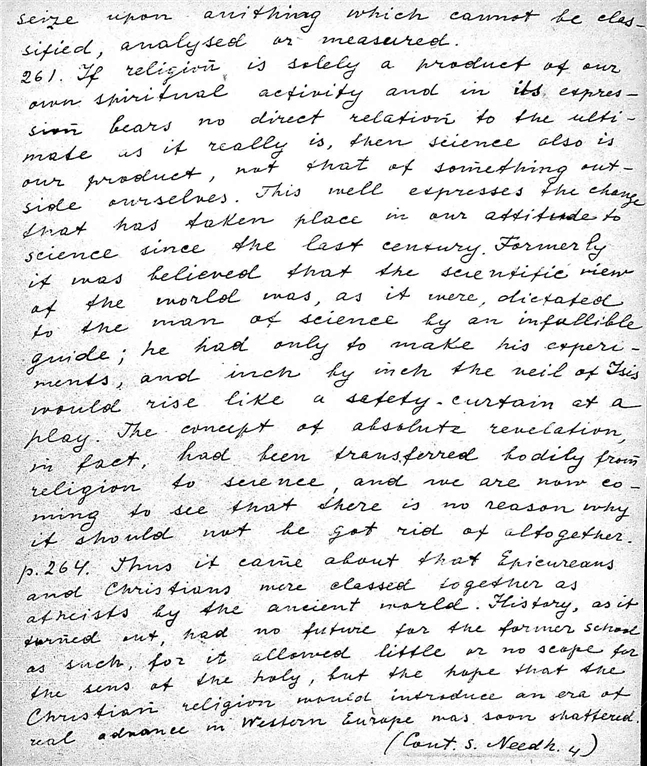 seize upon anithing which cannot be clas-
sified, analysed or measured.
261. If religion is solely a product of our
own spiritual activity and in its expres-
sion bears no direct relation to the ulti-
mate as it really is, then science also is
our product, not that of something out-
side ourselves. This well expresses the change
that has taken place in our attitude to
science since the last century. Formerly
it was believed that the scientific view
of the world was, as it were, dictated
to the man of science by an infallible
guide; he had only to make his experi-
ments, and inch by inch the veil of Isis
would rise like a safety-curtain at a
play. The concept of absolute revelation,
in fact, had been transferred bodily from
religion to science, and we are now co-
ming to see that there is no reason why
it should not be got rid of altogether.
p. 264. Thus it came about that Epicureans
and Christians were classed together as
atheists by the ancient world. History, as it
turned out, had no future for the former school
as such, for it allowed little or no scope for
the sens of the holy, but the hope that the
Christian religion would introduce an era of
real advance in Western Europe was soon shattered.
(Cont. s. Needh. 4)